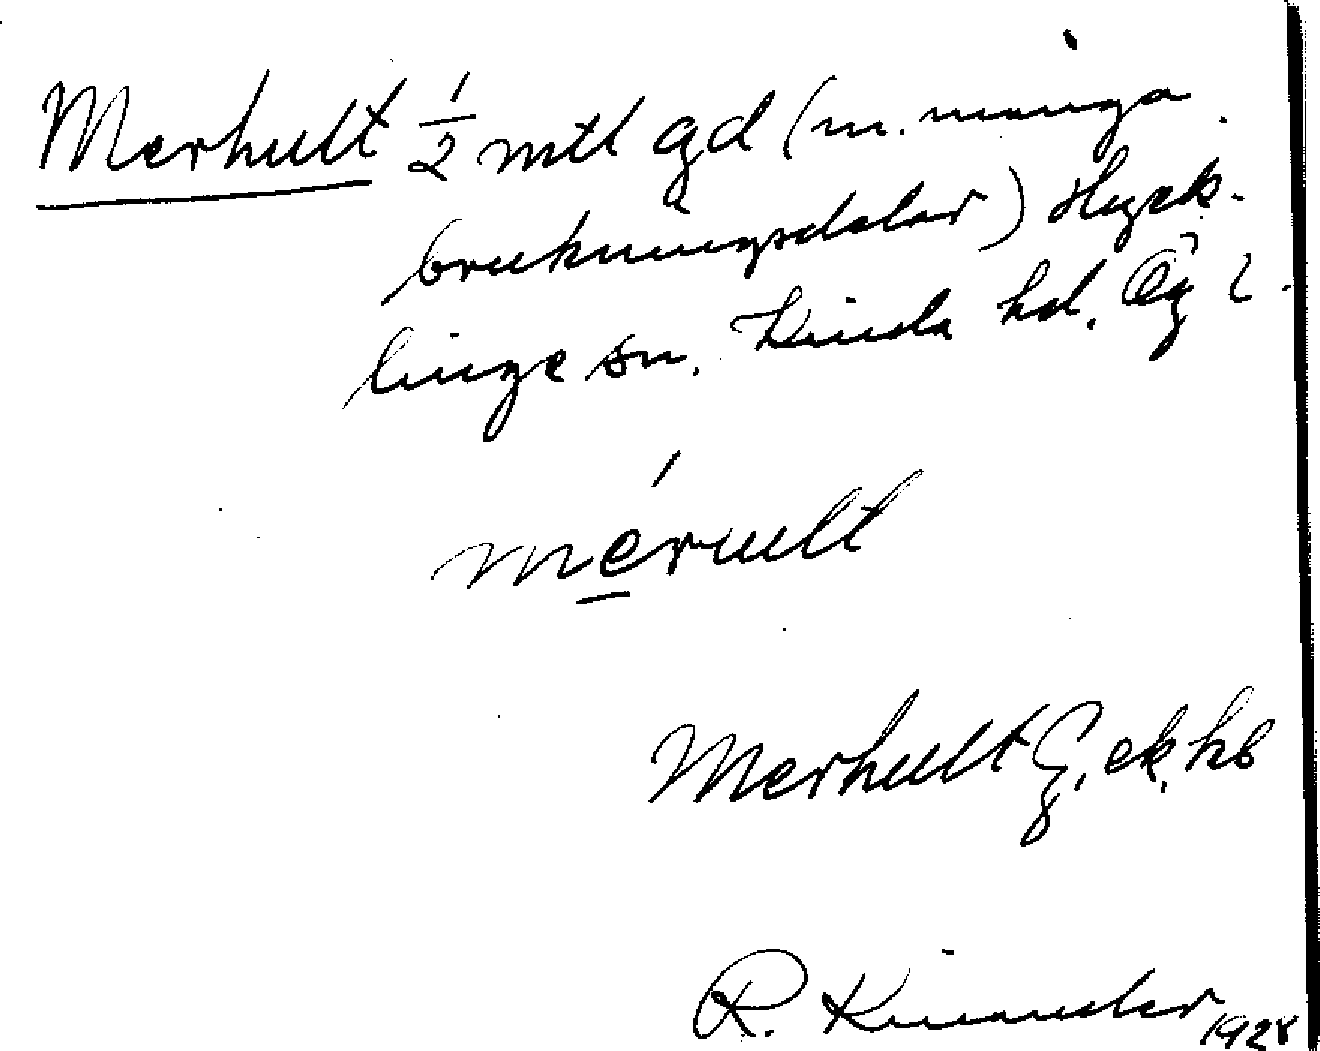 Merhult 1/2 mtl gd (m. många
brukningsdelar) Hyck-
linge sn. Kinda hd. Ög l.
mérult
Merhult G. ek. kb
R. Kinander 1928